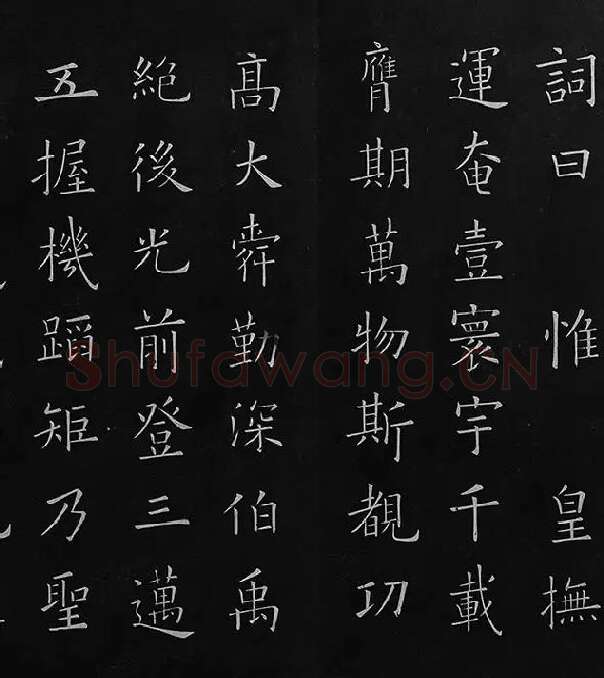 詞曰 惟 皇撫
運奄壹寰宇千載
膺期萬物斯覩功
髙大舜勤深伯禹
絕後光前登三邁
五握機蹈矩乃聖
Shufawang.CN